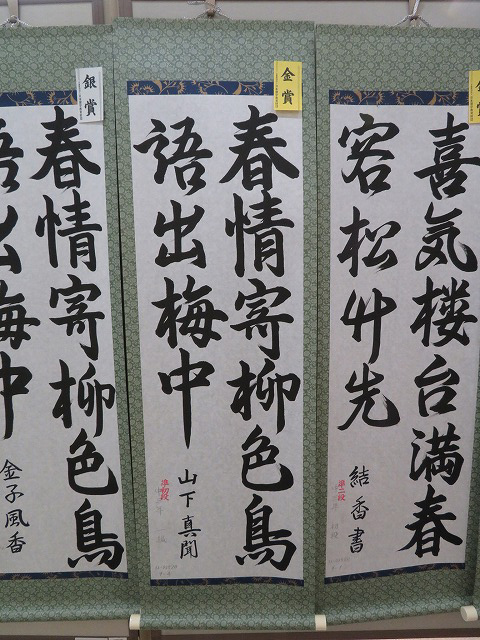 金賞
喜気楼台満春
容松竹先
準二段
結香書
金賞
春情寄柳色鳥
語出梅中
準初段
山下真聞
銀賞
春情寄柳色鳥
語出梅中
金子風香